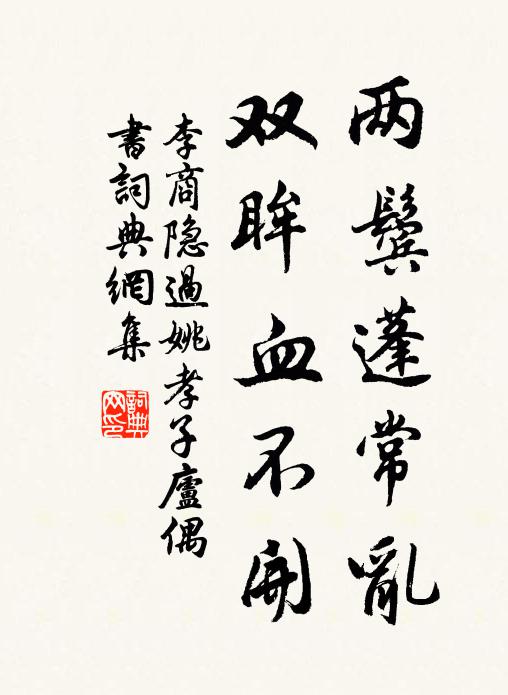 两鬓蓬常亂
双眸血不開
李商隐過姚孝子廬偶
書詞典網集
詞典网印